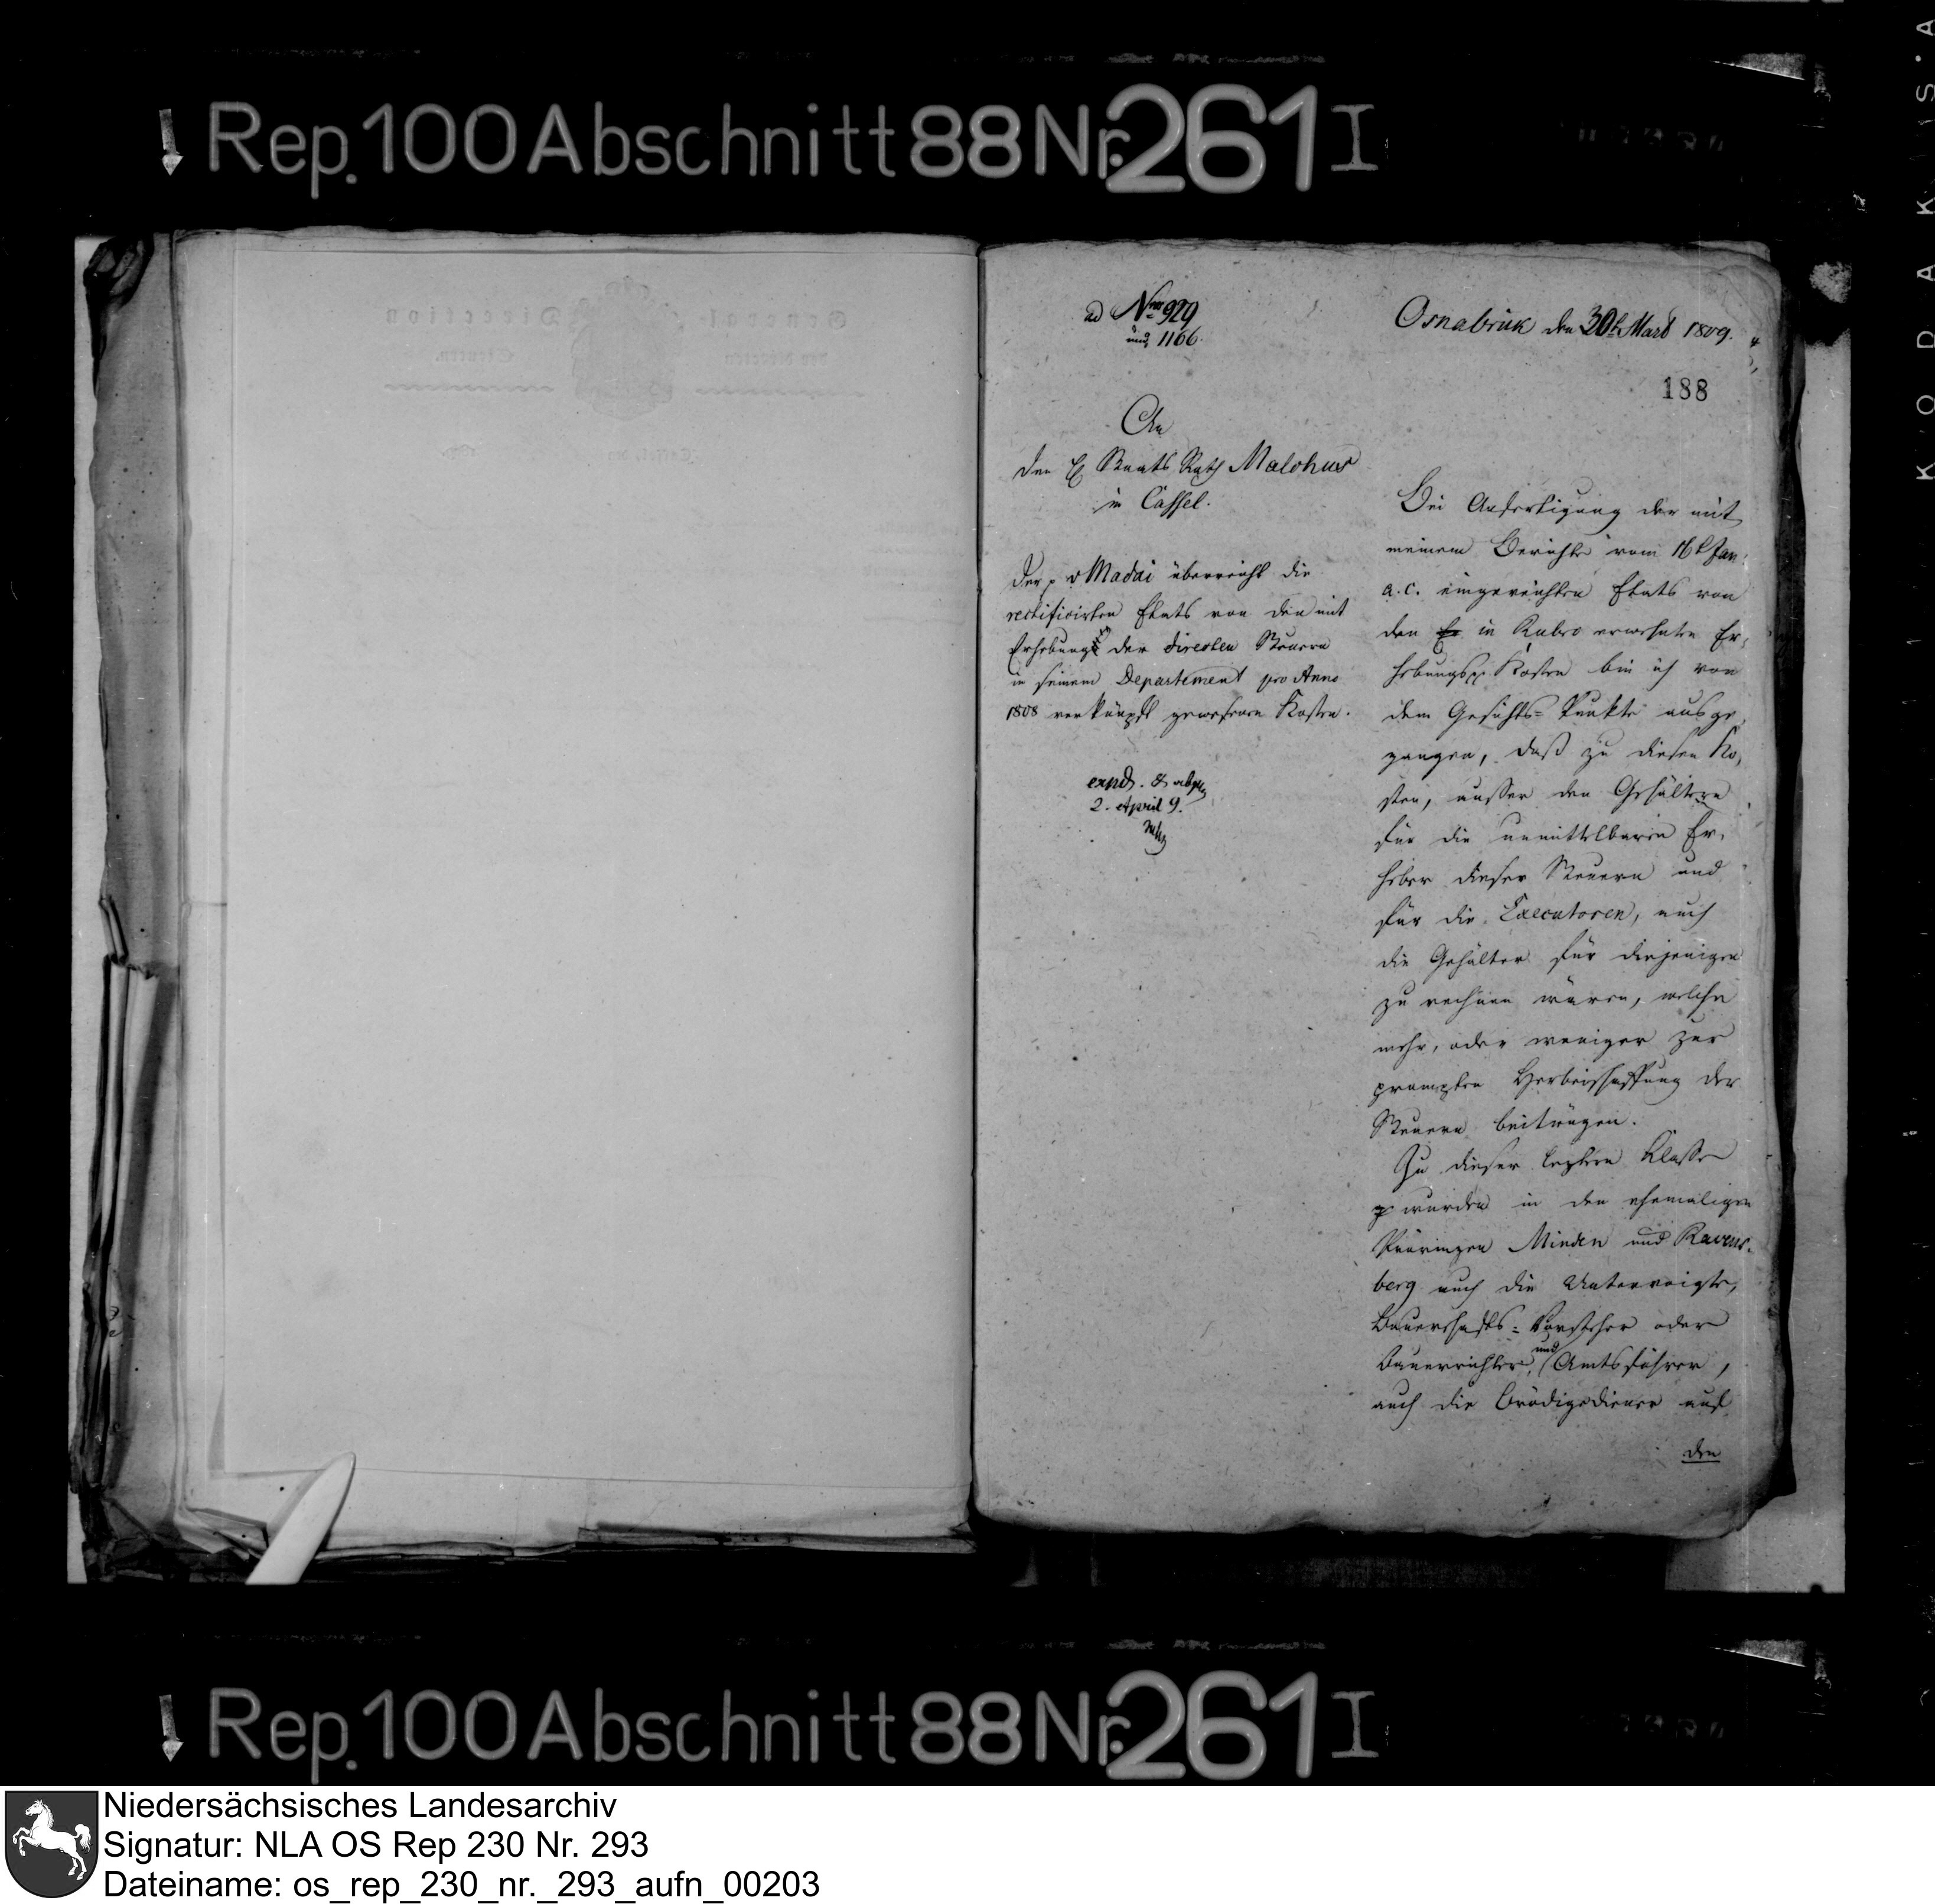 Rep. 100 Abschnitt 88 Nr. 261 I
ad Nro 929
und 1166.
Osnabrück den 30t Marz 1809.
188
An
den H Staats Rath Malchus
in Cassel.
Der p v Madai überreicht die
rectificirten Etats von den mit
Erhebung der directen Steuern
in seinem Departement pro Anno
1808 verknüpft gewesenen Kosten.
expd. & abg
2. April 9.
Bei Anfertigung der mit
meinem Berichte vom 16t Jan.
a. c. eingereichten Etats von
den in Rubro erwehnten Er-
hebungs pp Kosten bin ich von
dem Gesichts-Punkte ausge-
gangen, daß zu diesen Ko-
sten, ausser den Gehältern
für die unmittelbaren Er-
heber dieser Steuern und
für die Executoren, auch
die Gehälter für diejenigen
zu rechnen wären, welche
mehr, oder weniger zur
prompten Herbeischaffung der
Steuern beitrügen.
Zu dieser leztern Klasse
wurden in den ehemaligen
Provinzen Minden und Ravens-
berg auch die Untervoigte,
Bauerschafts-Vorsteher oder
Bauerrichter, und Amtsführer,
auch die Brödigediener auf
den
Rep. 100 Abschnitt 88 Nr. 261 I
Niedersächsisches Landesarchiv
Signatur: NLA OS Rep 230 Nr. 293
Dateiname: os_rep_230_nr._293_aufn_00203